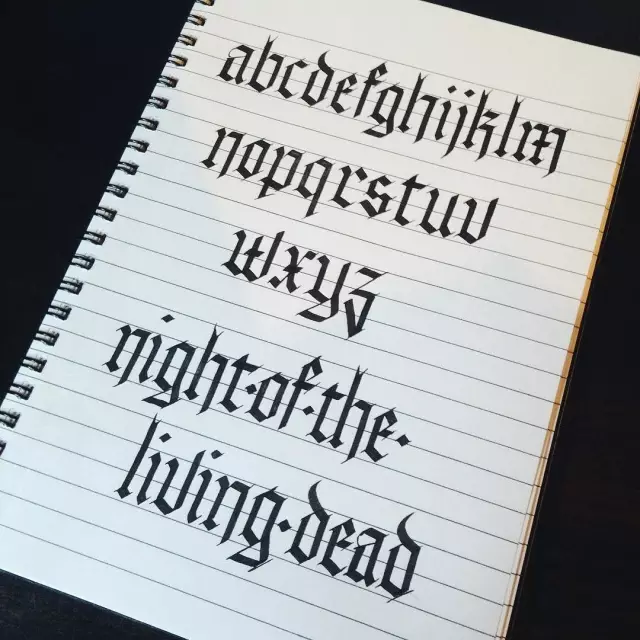 abcdefghijklm
nopqrstuv
wxyz
night·of·the·
living·dead